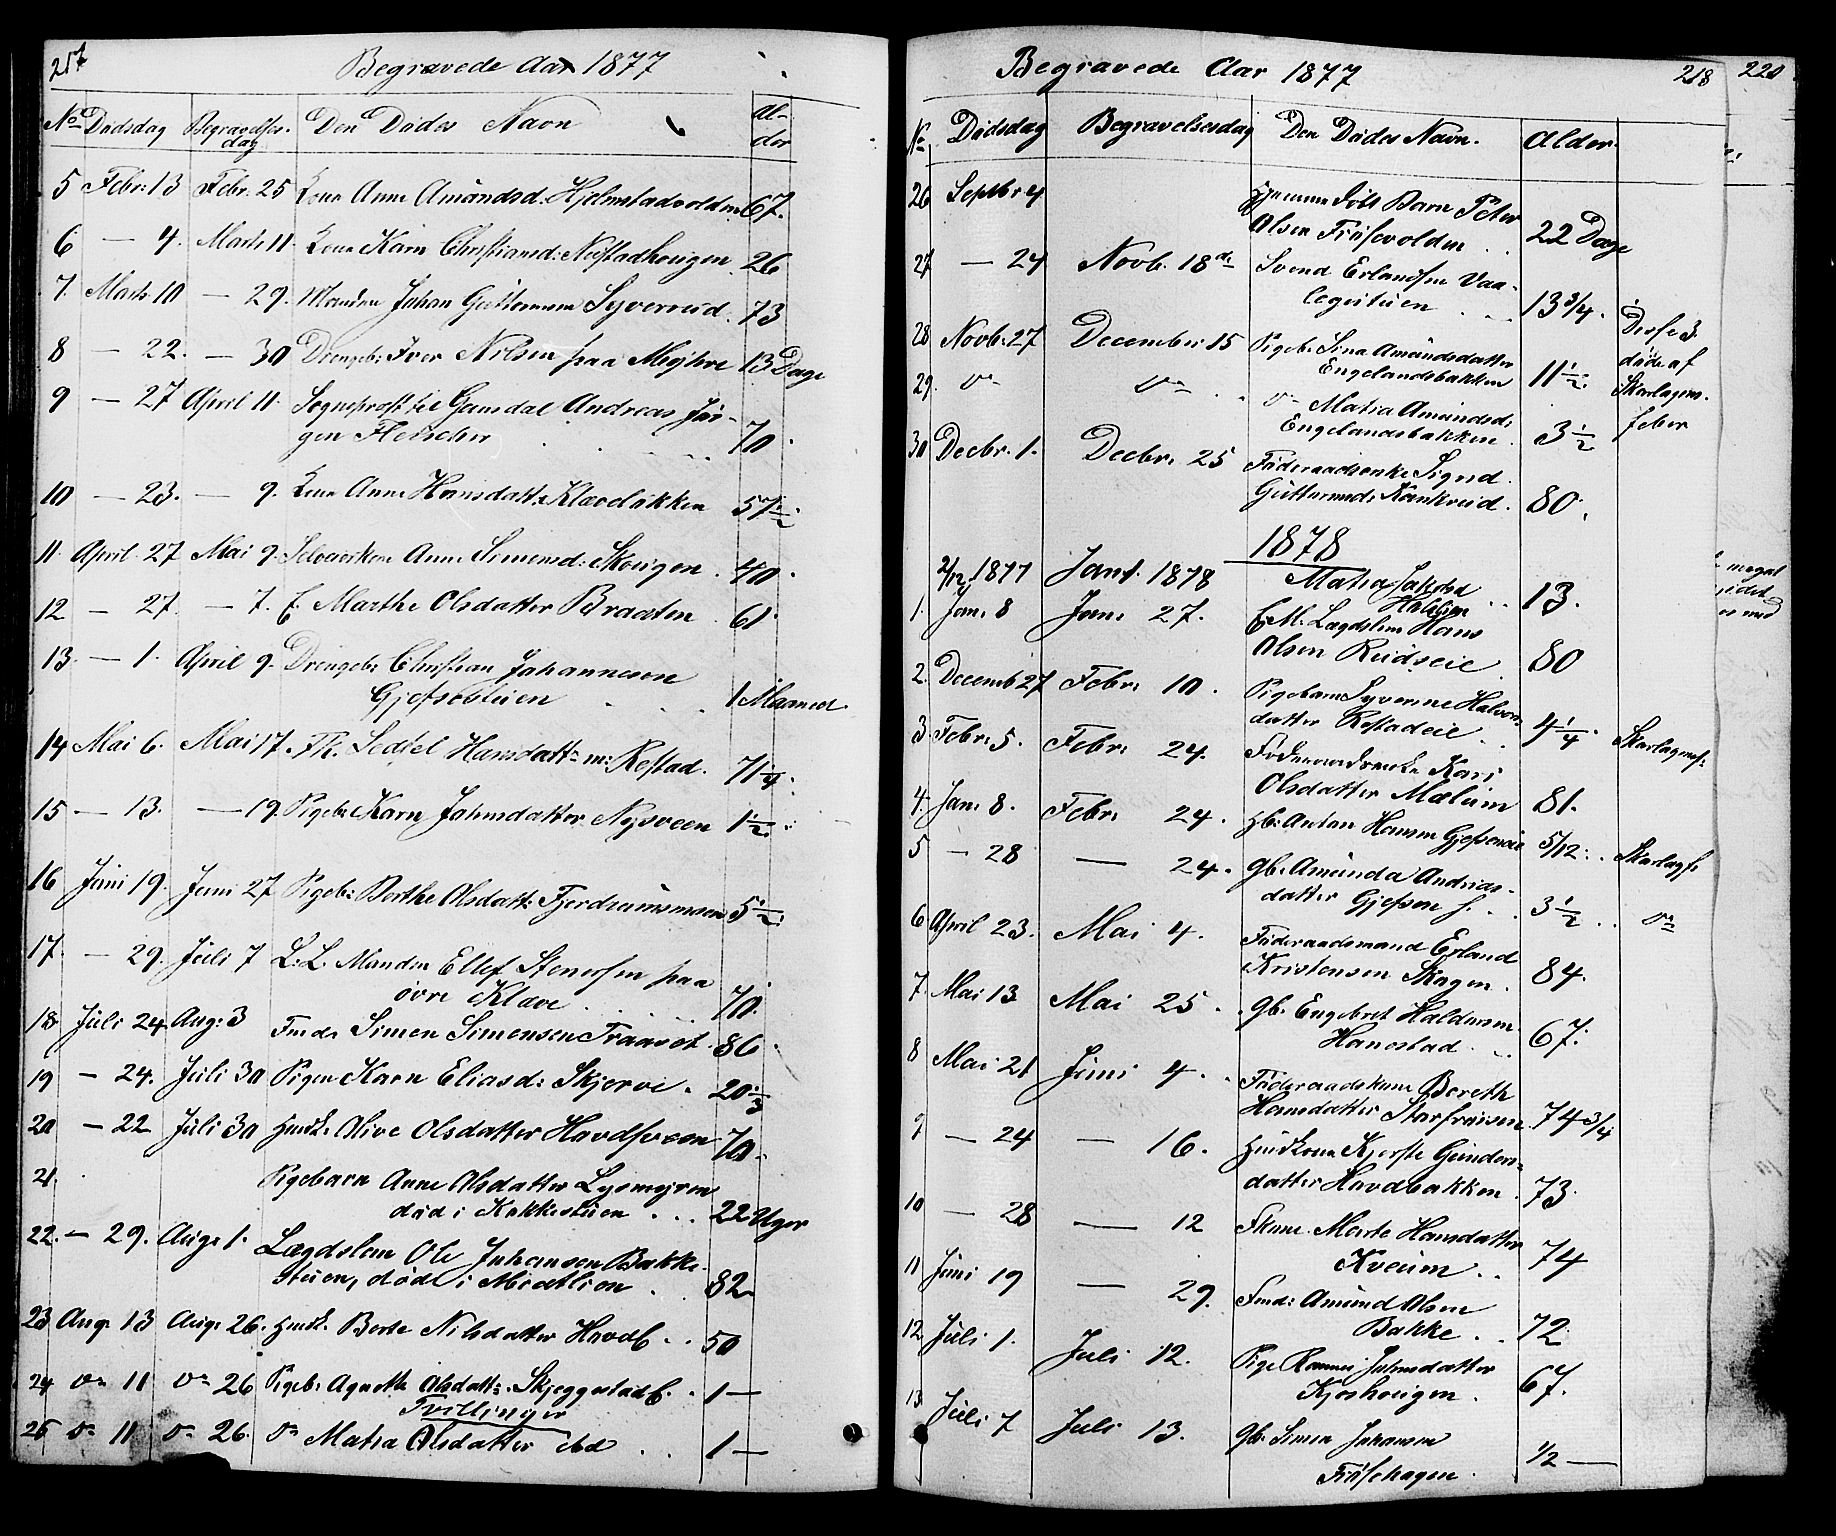 Begravede Aar 1877
No Dødsdag Begravelses- Den Dødes Navn Al-
dag der
5 Febr. 13 Febr. 25 Kone Anne Amundsd. Hjelmstadvolden 67.
6 — 4. Marts 11 Kone Karn Christiansd: Nestadhougen 26
7. Marts 10 — 29. Manden Johan Guttormsen Syverrud. 73
8 — 22. — 30 Drengeb: Iver Nilsen paa Mejhre 13 Dage
9 — 27 April 11. Sogneprest til Gausdal Andreas Jør-
gen Fleischer 70.
10 — 23. — 9. Kone Anne Hansdatt: Kløveløkken 57 1/2
11. April 27 Mai 9. Selveierkone Anne Simensd: Skougen. 40.
12 — 27. — 7. E. Marthe Olsdatter Braaten. 61.
13. — 1. April 9. Drengeb: Christian Johannesen
Gjefsestuen 1 Maaned.
14 Mai 6. Mai 17. Fk. Sedsel Hansdatt: Restad. 71 1/4.
15 — 13. — 19. Pigeb: Karn Johnsdatter Nysveen 1 1/2.
16 Juni 19. Juni 27 Pigeb: Berthe Olsdatt: Fjerdumsmoen 5 1/2.
17. — 29. Juli 7 L: L. Manden Ellef Stenersen paa
øvre Kløve 70.
18 Juli 24. Aug: 3 Fmd: Simen Simensen Traaset. 86.
19 — 24. Juli 30 Pigen Karn Eliasd: Skjerve. 20 1/3
20 — 22 Juli 30 Hmdk: Olive Olsdatter Havdsveen 70.
21. Pigebarn Anne Olsdatter Lysmyren
død i Kokkestuen 22 Uger
22. — 29. Aug: 1. Lægdslem Ole Johansen Bakke-
stuen, død i Midtlien 82.
23 Aug. 13 Aug. 26. Hmdk. Berte Nilsdatter Havdb. 50
24 do 11 do 26 Pigeb: Agnethe Olsdatt: Skjeggestad E. 1 —
Tvillinger
25 do 11 do 26. do Matea Olsdatter ibd 1 —
Begravede Aar 1877 218 220
No Dødsdag Begravelsesdag Den Dødes Navn. Alder.
26 Septbr 4 Hjemmedøbt Barn Peter
Olsen Frøisevolden 22 Dage
27 — 24 Novb. 18de Svend Erlandsen Vaa-
legutuen 13 3/4.
28 Novb. 27 December 15 Pigeb. Sina Amundsdatter
Engelandsbakken 11 1/2. Disse 3
døde af
Skarlagens-
feber
29. do do do Matea Amundsd:
Engelandsbakken 3 1/2
30 Decbr. 1. Decbr. 25 Føderaadsenke Sigrid
Guttormsd: Kankrud. 80.
1878
2/12 1877 Jan 1. 1878 Matea Jakobsd 13.
1. Jan. 8 Jan. 27. E. M. Lægdslem Hans
Olsen Rudseie 80
2. Decemb 27 Febr. 10. Pigebarn Syverine Halvors-
datter Restadeie 4 1/4. Skarlagensf:
3. Febr. 5. Febr. 24. Føderaadsenke Kari
Olsdatter Mælum 81.
4. Jan. 8. Febr. 24. Gb: Anton Hansen Gjefseneie 5/12. Skarlagf:
5 — 28 — 24. Gb. Amunda Andrias-
datter Gjefsen f. 3 1/2 do
6 April 23. Mai 4. Føderaadsmand Erland
Kristensen Skagen. 84.
7. Mai 13 Mai 25. Gb. Engebret Haldorsen
Hanestad 67.
8 Mai 21 Juni 4. Føderaadskone Bereth
Hansdatter 74 3/4
9 — 24 — 16. Hmdkone Kjerste Gunders-
datter Havdbakken. 73.
10 — 28 — 12 Fkone Marte Hansdatter
Kveum 74
11 Juni 19 — 29. Fmd: Amund Olsen
Bakke 72
12. Juli 1. Juli 12. Pige Johnsdatter
Kjoshougen. 67.
13. Juli 7 Juli 13. Gb. Simen Johansen
Frøisehagen. 1/2 —